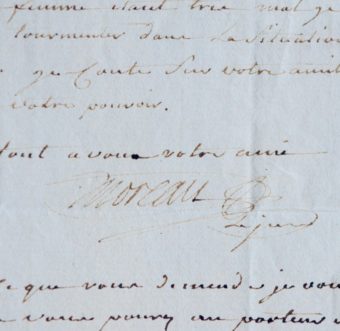 femme étant très mal je
tourmenter dans La Situation
je Conte Sur votre amit
votre pouvoir.
tout a vous votre ami
Moreau
Le jeune
Ce que vous demande je vou
vous pourez au porteur